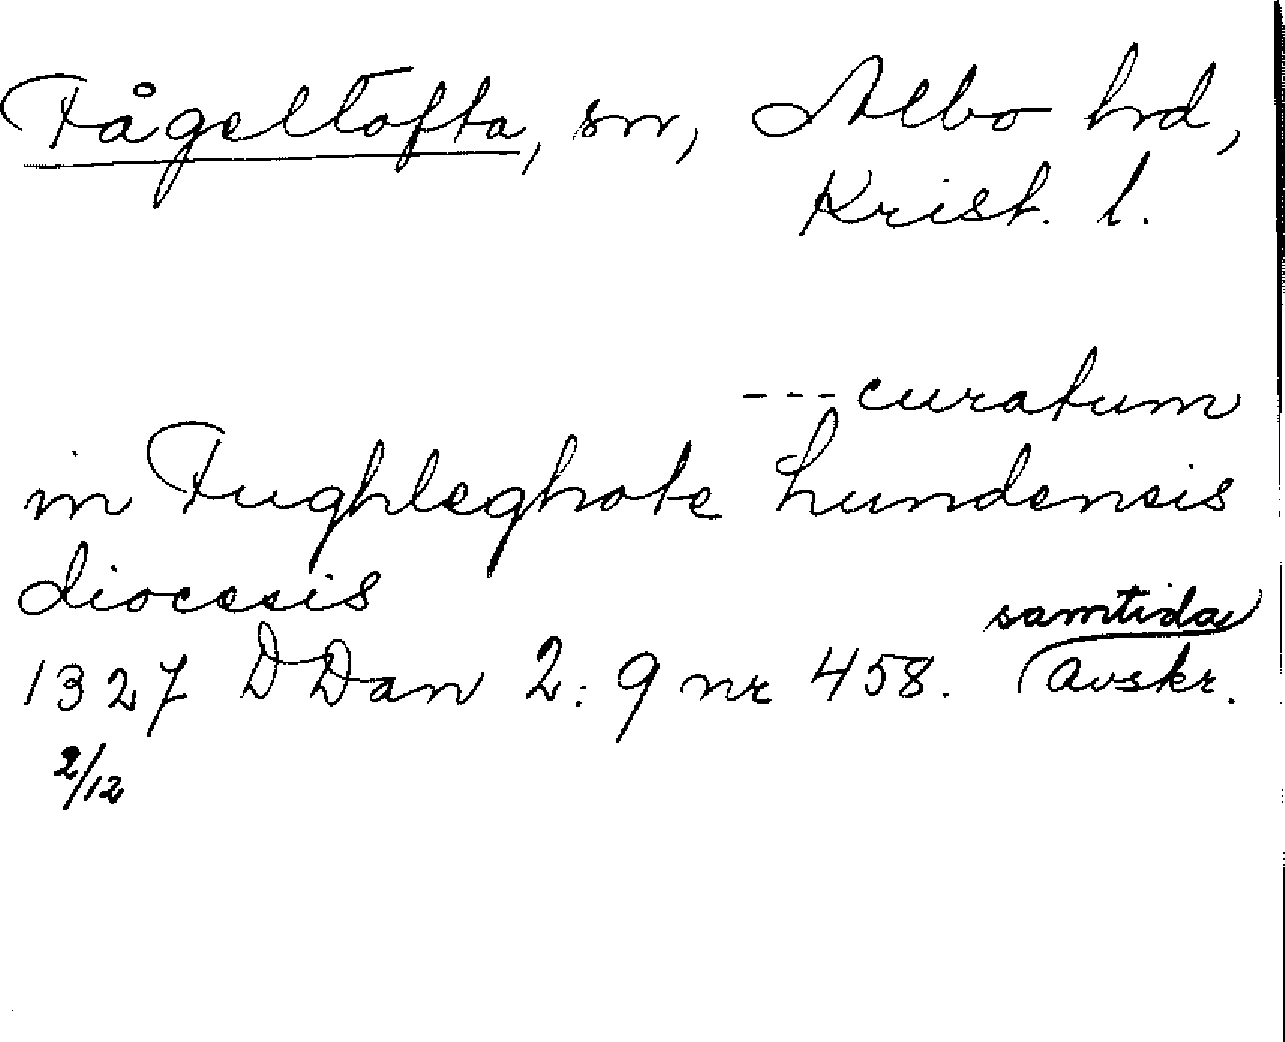 Fågeltofta, sn, Albo hd,
Krist. l.
---curatum
in Fughleghote Lundensis
diocesis
samtida
1327 DDan 2:9 nr 458. avskr.
2/12